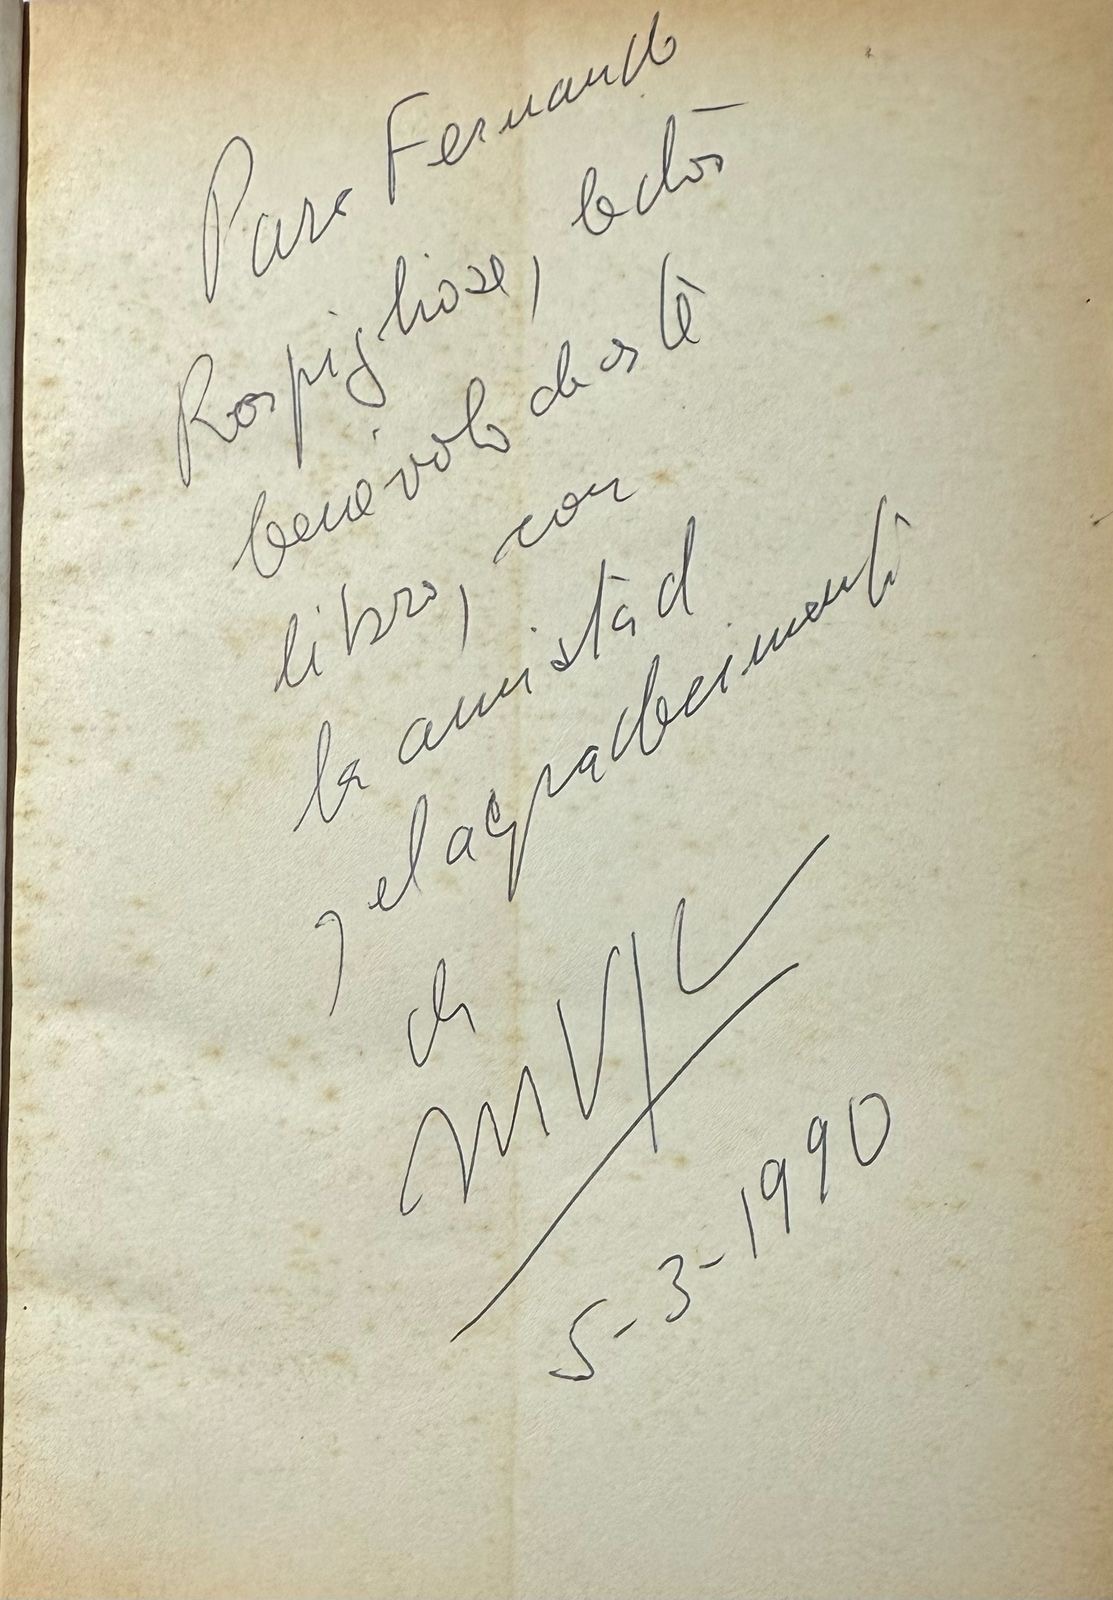 Para Fernando
Rospigliosi, lector
benévolo de este
libro, con
la amistad
y el agradecimiento
de
MVLL
5-3-1990